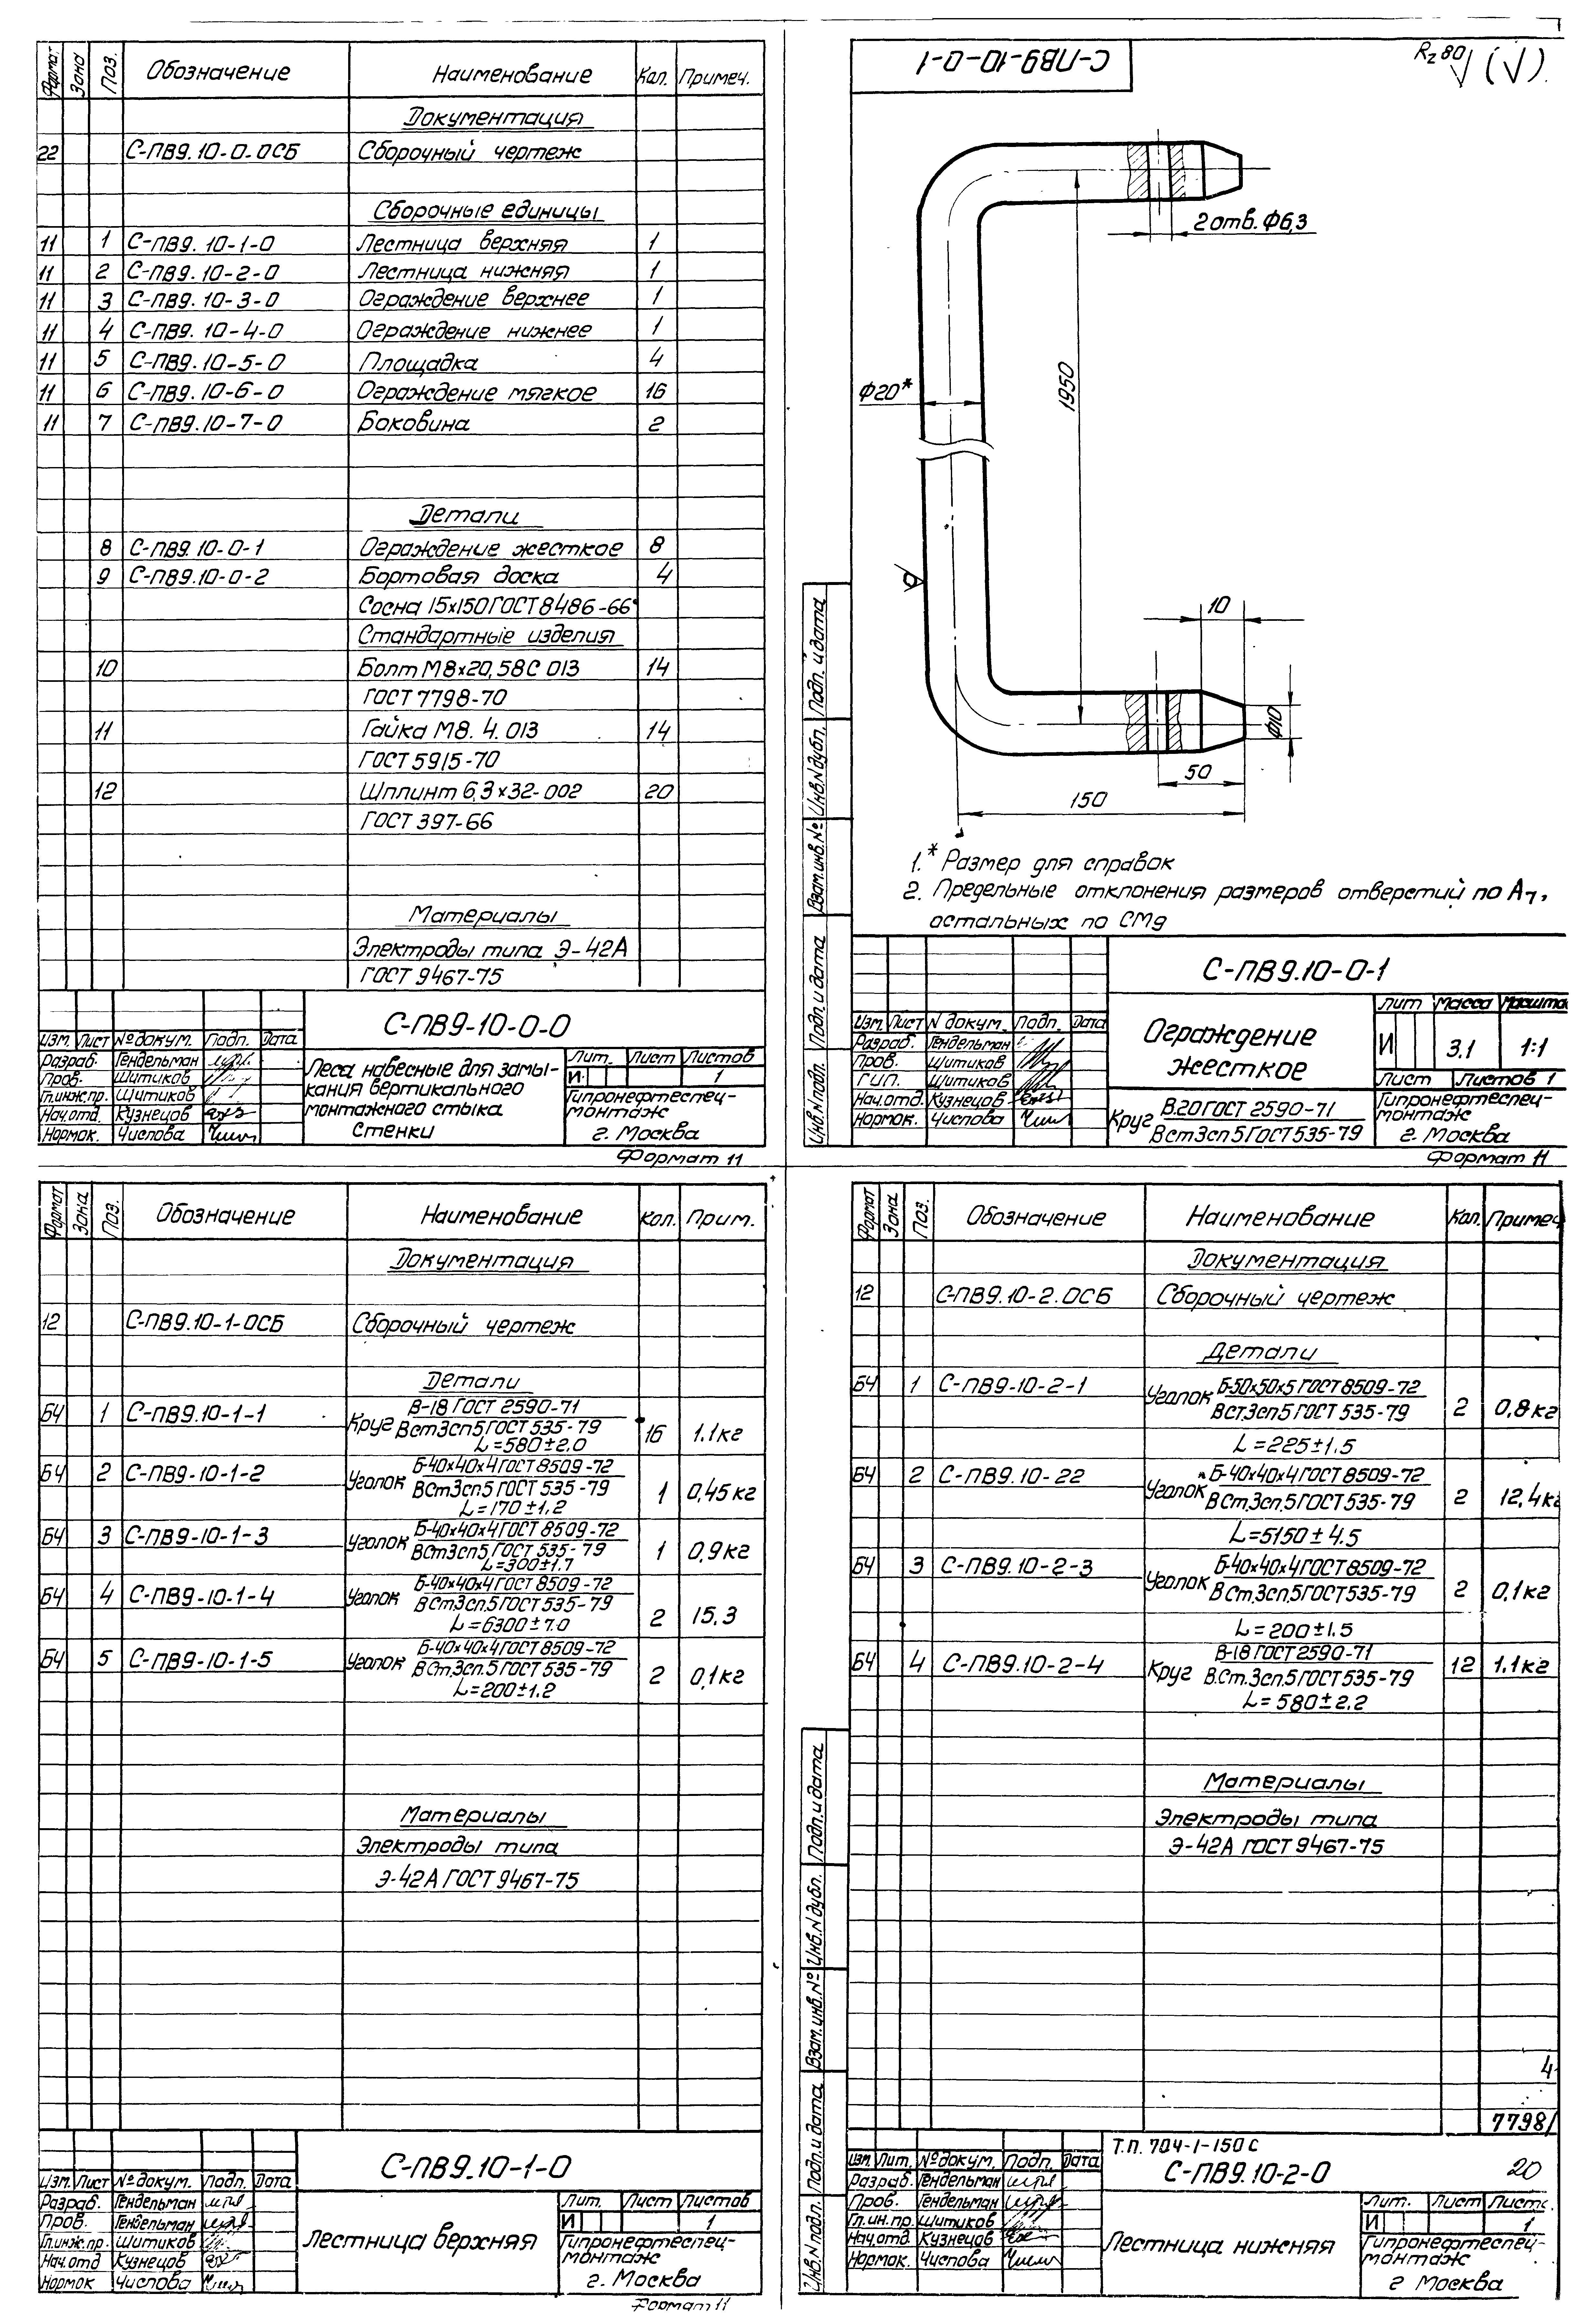 Формат Зона Поз. Обозначение Наименование Кол. Примеч.
Документация
22 С-ПВ9.10-0-0СБ Сборочный чертеж
Сборочные единицы
11 1 С-ПВ9.10-1-0 Лестница верхняя 1
11 2 С-ПВ9.10-2-0 Лестница нижняя 1
11 3 С-ПВ9.10-3-0 Ограждение верхнее 1
11 4 С-ПВ9.10-4-0 Ограждение нижнее 1
11 5 С-ПВ9.10-5-0 Площадка 4
11 6 С-ПВ9.10-6-0 Ограждение мягкое 16
11 7 С-ПВ9.10-7-0 Боковина 2
Детали
8 С-ПВ9.10-0-1 Ограждение жесткое 8
9 С-ПВ9.10-0-2 Бортовая доска 4
Сосна 15х150 ГОСТ 8486-66
Стандартные изделия
10 Болт М8х20,58С 013 14
ГОСТ 7798-70
11 Гайка М8.4.013 14
ГОСТ 5915-70
12 Шплинт 6,3х32-002 20
ГОСТ 397-66
Материалы
Электроды типа Э-42А
ГОСТ 9467-75
С-ПВ9-10-0-0
Изм. Лист № докум. Подп. Дата
Разраб. Гендельман
Пров. Шитиков
Гл.инж.пр. Шитиков
Нач.отд. Кузнецов
Нормок. Числова
Леса навесные для замы-
кания вертикального
монтажного стыка
стенки
Лит. Лист Листов
И 1
Гипронефтеспец-
монтаж
г. Москва
Формат 11
С-ПВ9-10-0-1
Rz80 (√).
2 отв. Ф6,3
1950
Ф20*
10
Ф10
50
150
1.* Размер для справок
2. Предельные отклонения размеров отверстий по А7,
остальных по СМ9
Подп. и дата
Инв.N дубл.
Взам.инв.№
Подп. и дата
Инв.N подл.
С-ПВ9.10-0-1
Изм. Лист N докум. Подп. Дата
Разраб. Гендельман
Пров. Шитиков
Гип. Шитиков
Нач.отд. Кузнецов
Нормок. Числова
Ограждение
жесткое
Лит Масса Масшта
И 3.1 1:1
Лист Листов 1
Круг В.20 ГОСТ 2590-71
ВСт3сп5 ГОСТ 535-79
Гипронефтеспец-
монтаж
г. Москва
Формат 11
Формат Зона Поз. Обозначение Наименование Кол. Прим.
Документация
12 С-ПВ9.10-1-0СБ Сборочный чертеж
Детали
БЧ 1 С-ПВ9.10-1-1 Круг В-18 ГОСТ 2590-71
ВСт3сп5 ГОСТ 535-79 16 1.1кг
L=580±2.0
БЧ 2 С-ПВ9-10-1-2 Уголок Б-40х40х4 ГОСТ 8509-72
ВСт3сп5 ГОСТ 535-79 1 0,45кг
L=170±1.2
БЧ 3 С-ПВ9-10-1-3 Уголок Б-40х40х4 ГОСТ 8509-72
ВСт3сп5 ГОСТ 535-79 1 0,9кг
L=300±1.7
БЧ 4 С-ПВ9-10-1-4 Уголок Б-40х40х4 ГОСТ 8509-72
ВСт3сп.5 ГОСТ 535-79 2 15.3
L=6300±7.0
БЧ 5 С-ПВ9-10-1-5 Уголок Б-40х40х4 ГОСТ 8509-72
ВСт.3сп.5 ГОСТ 535-79 2 0,1кг
L=200±1.2
Материалы
Электроды типа
Э-42А ГОСТ 9467-75
С-ПВ9.10-1-0
Изм. Лист № докум. Подп. Дата
Разраб. Гендельман
Пров. Гендельман
Гл.инж.пр. Шитиков
Нач.отд Кузнецов
Нормок Числова
Лестница верхняя
Лит. Лист Листов
И 1
Гипронефтеспец-
монтаж
г. Москва
Формат 11
Формат Зона Поз. Обозначение Наименование Кол. Примеч
Документация
12 С-ПВ9.10-2.0СБ Сборочный чертеж
Детали
БЧ 1 С-ПВ9-10-2-1 Уголок Б-50х50х5 ГОСТ 8509-72
ВСт3сп5 ГОСТ 535-79 2 0,8кг
L=225±1.5
БЧ 2 С-ПВ9.10-22 Уголок Б-40х40х4 ГОСТ 8509-72
ВСт.3сп.5 ГОСТ 535-79 2 12,4кг
L=5150±4.5
БЧ 3 С-ПВ9.10-2-3 Уголок Б-40х40х4 ГОСТ 8509-72
ВСт,3сп.5 ГОСТ 535-79 2 0,1кг
L=200±1.5
БЧ 4 С-ПВ9.10-2-4 Круг В-18 ГОСТ 2590-71
В.Ст.3сп.5 ГОСТ 535-79 12 1.1кг
L=580±2.2
Материалы
Электроды типа
Э-42А ГОСТ 9467-75
4
7798/
Подп. и дата
Инв.N дубл.
Взам.инв.№
Подп. и дата
Инв.N подл.
Т.П. 704-1-150 С
С-ПВ9.10-2-0 20
Изм. Лит. № докум. Подп. Дата
Разраб. Гендельман
Пров. Гендельман
Гл.ин.пр. Шитиков
Нач.отд Кузнецов
Нормок. Числова
Лестница нижняя
Лит. Лист Листо
И 1
Гипронефтеспец-
монтаж
г Москва